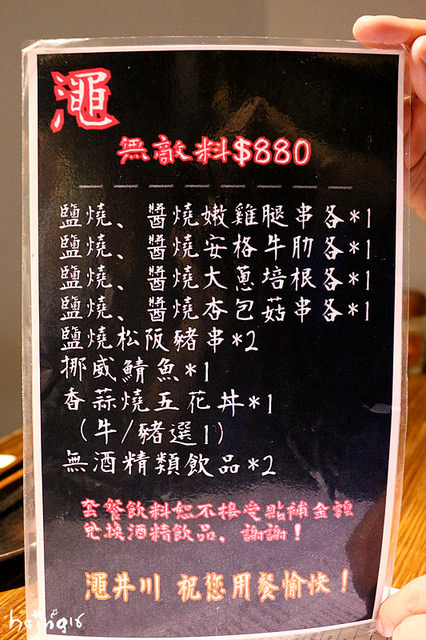 澠
無敵料$880
鹽燒、醬燒嫩雞腿串各*1
鹽燒、醬燒安格牛肋各*1
鹽燒、醬燒大蔥培根各*1
鹽燒、醬燒杏包菇串各*1
鹽燒松阪豬串*2
挪威鯖魚*1
香蒜燒五花丼*1
(牛/豬選1)
無酒精類飲品*2
套餐飲料恕不接受貼補金額
兌換酒精飲品，謝謝！
澠井川 祝您用餐愉快！